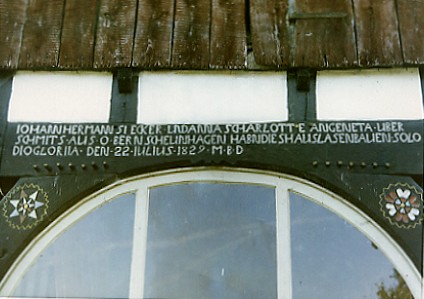 IOHANN HERMANN SIECKER UND ANNA SCHARLOTTE ANGENETA · UBER
SCHMITS · ALIS O · BERNSCHELINHAGEN HABN DIES HAUS LASEN BAUEN · SOLO
DIO GLORIIA · DEN · 22 · IULIUS · 1829 · M · B · D